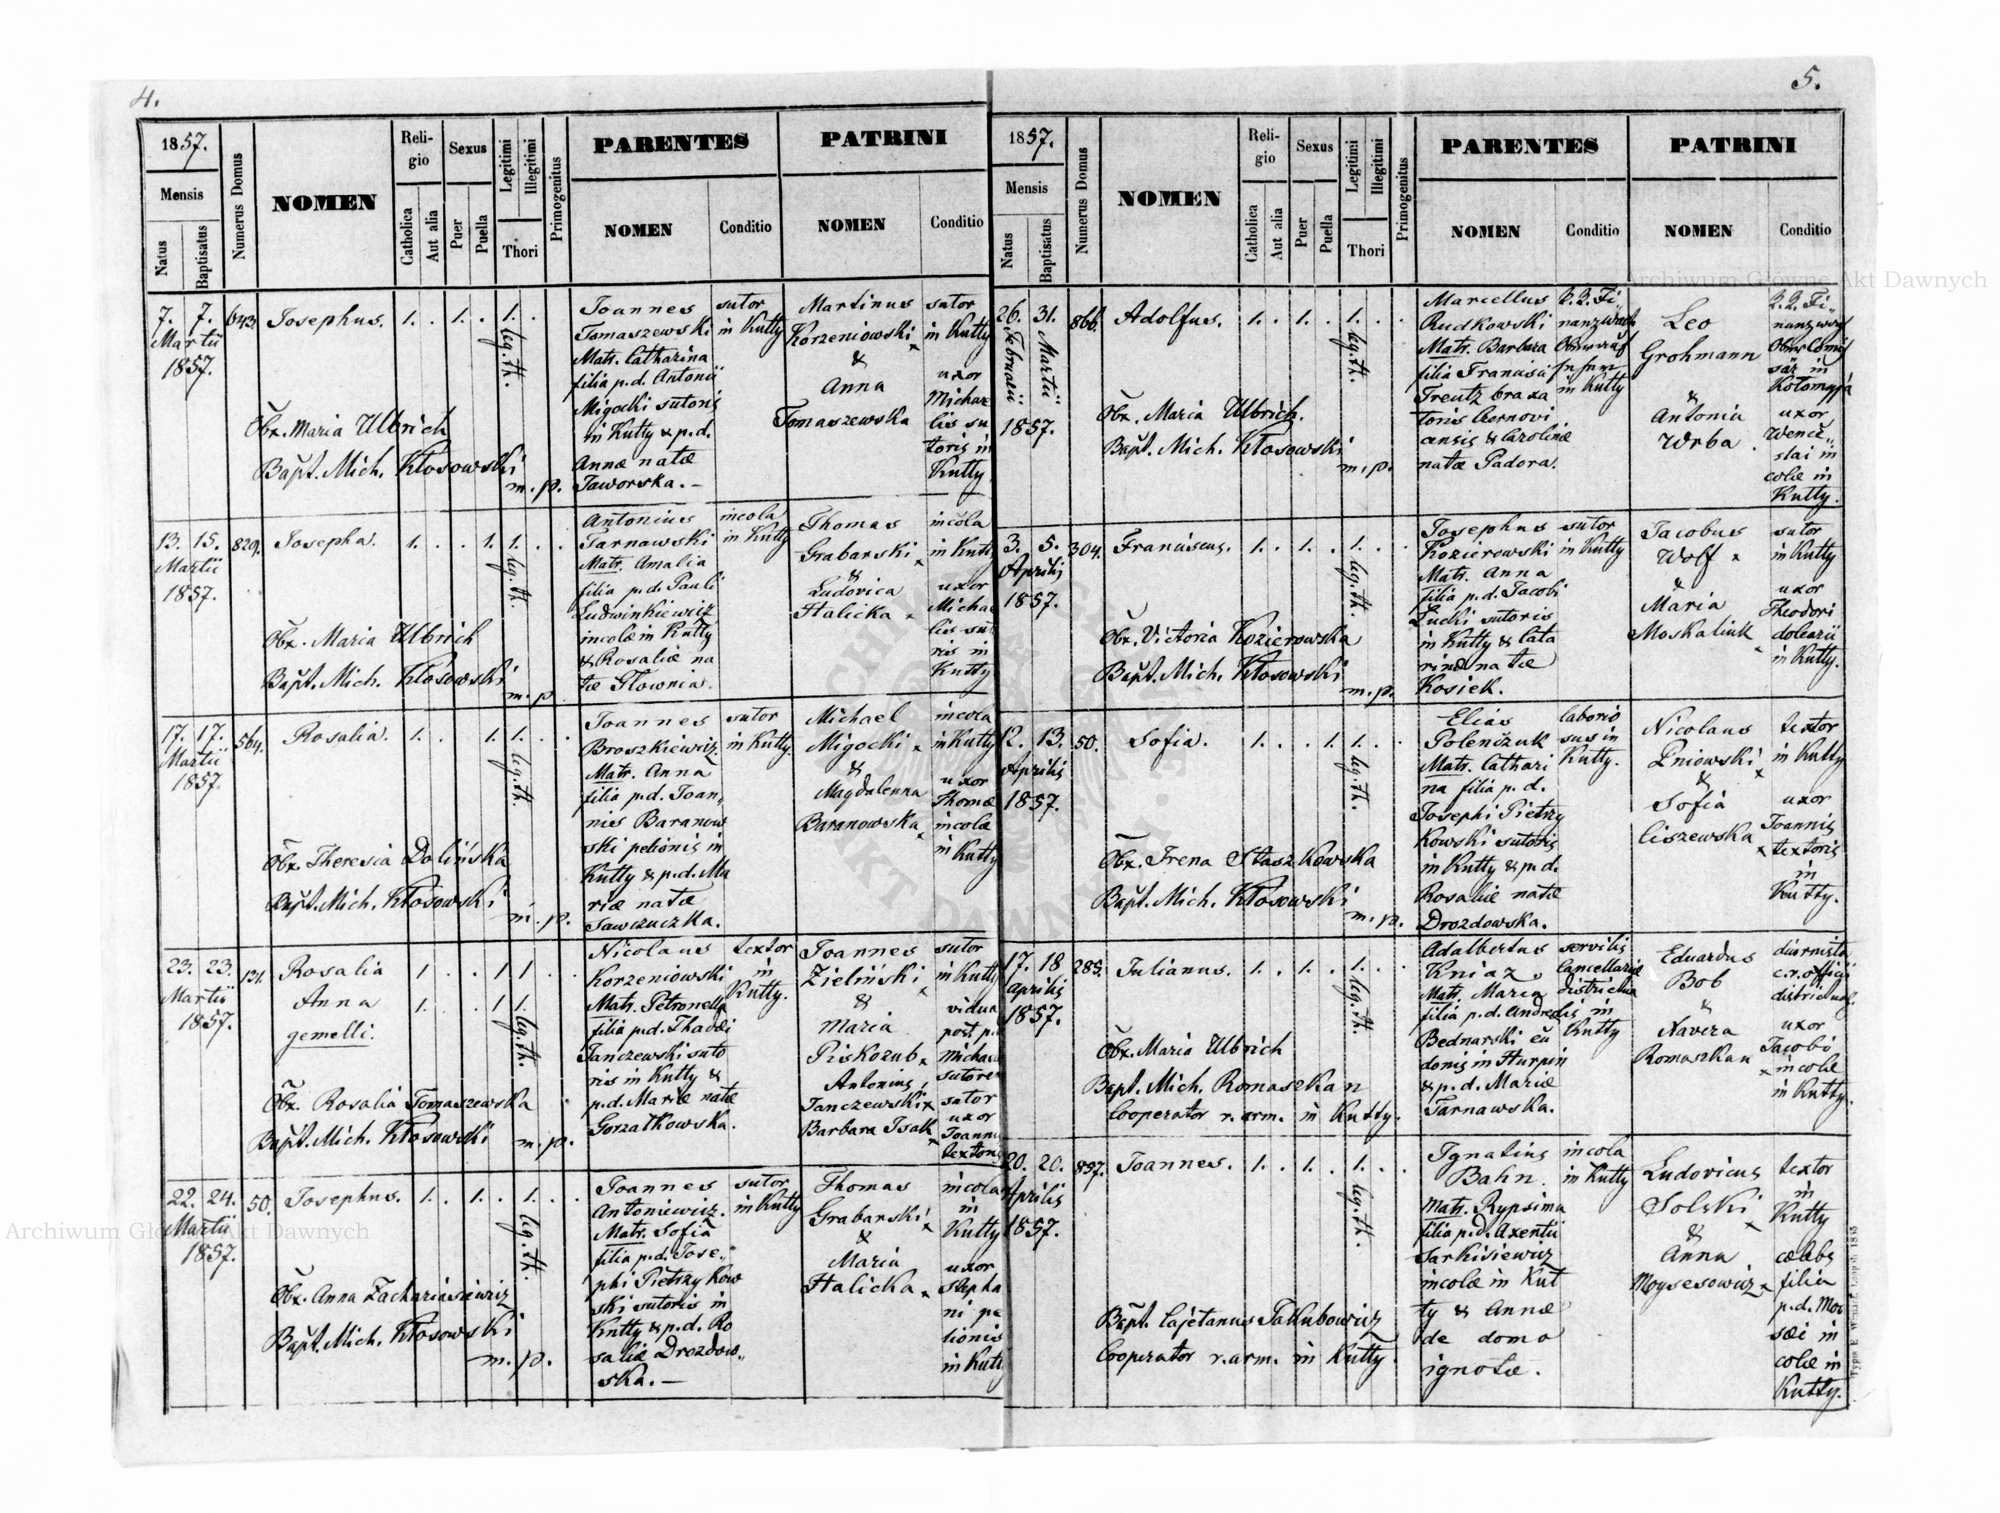 4.
1857.
Mensis
Natus
Baptisatus
Numerus Domus
NOMEN
Reli-
gio
Catholica
Aut alia
Sexus
Puer
Puella
Legitimi
Illegitimi
Thori
Primogenitus
PARENTES
NOMEN
Conditio
PATRINI
NOMEN
Conditio
7. 7.
Martii
1857.
643.
Josephus.
1. . 1. . 1. .
leg. th.
Obx. Maria Ulbrich
Bapt. Mich. Kłosowski
m. p.
Joannes
Tomaszewski
Matr. Catharina
filia p.d. Antonii
Migocki sutoris
in Kutty & p.d.
Annæ natæ
Jaworska. —
sutor
in Kutty
Martinus
Korzeniowski
&
Anna
Tomaszewska
sutor
in Kutty
uxor
Michae
lis su
toris in
Kutty
13. 15.
Martii
1857.
829.
Josepha.
1. . . 1. 1. . .
leg. th.
Obx. Maria Ulbrich
Bapt. Mich. Kłosowski
m. p.
Antonius
Tarnawski
Matr. Amalia
filia p.d. Pauli
Ludwinkiewicz
incolæ in Kutty
& Rosaliæ na
tæ Głownia.
incola
in Kutty
Thomas
Grabarski
&
Ludovica
Halicka
incola
in Kutty
uxor
Michae
lis su
ris in
Kutty
17. 17.
Martii
1857.
564.
Rosalia.
1. . . 1. 1. . .
leg. th.
Obx. Theresia Dolińska
Bapt. Mich. Kłosowski
m. p.
Joannes
Broszkiewicz.
Matr. Anna
filia p.d. Joan„
nis Baranow
ski pelionis in
Kutty & p.d. Ma
riæ natæ
Sawczuczka.
sutor
in Kutty.
Michael
Migocki
&
Magdalenna
Baranowska
incola
in Kutty
uxor
Thomæ
incolæ
in Kutty
23. 23.
Martii
1857.
131.
Rosalia
Anna
gemelli.
1 . . 1 1 . .
1. . . 1 1. . .
leg. th.
Obx. Rosalia Tomaszewska
Bapt. Mich. Kłosowski
m. p.
Nicolaus
Korzeniowski
Matr. Petronella
filia p.d. Thadei
Janczewski suto
ris in Kutty &
p.d. Mariæ natæ
Gorzałkowska.
textor
in
Kutty.
Joannes
Zieliński
&
Maria
Piskozub
Antonius
Janczewski
Barbara Isak
sutor
in Kutty
vidua
post p.d.
Michae
sutore
sutor
uxor
Joannis
textoris
22. 24.
Martii
1857.
50.
Josephus.
1. . 1. . 1. . .
leg. th.
Obx. Anna Zachariasiewicz
Bapt. Mich. Kłosowski
m. p.
Joannes
Antoniewicz.
Matr. Sofia
filia p.d. Jose„
phi Pietrzykow
ski sutoris in
Kutty & p.d. Ro
saliæ Drozdow„
ska. —
sutor
in Kutty
Thomas
Grabarski
&
Maria
Halicka
incola
in
Kutty
uxor
Stepha
ni pe
lionis
in Kutty
5.
1857.
Mensis
Natus
Baptisatus
Numerus Domus
NOMEN
Reli-
gio
Catholica
Aut alia
Sexus
Puer
Puella
Legitimi
Illegitimi
Thori
Primogenitus
PARENTES
NOMEN
Conditio
PATRINI
NOMEN
Conditio
26. 31.
Februarii
Martii
1857.
866.
Adolfus.
1. . 1. . 1. . .
leg. th.
Obx. Maria Ulbrich.
Bapt. Mich. Kłosowski
m. p.
Marcellus
Rudkowski
Matr. Barbara
filia Francisci
Treutz braxa
toris Czernovi
censis & Carolinæ
natæ Padora.
k. k. Fi„
nanzwach
in Kutty
Leo
Grohmann
&
Antonia
Wrba.
k. k. Fi„
in
Kołomyja
uxor
Wence„
slai in
colæ in
Kutty.
3. 5.
Aprilis
1857.
304.
Franciscus.
1. . 1. . 1. . .
leg. th.
Obx. Victoria Kozierowska
Bapt. Mich. Kłosowski
m. p.
Josephus
Kozierowski
Matr. Anna
filia p.d. Jacobi
Łucki sutoris
in Kutty & Cata
rinæ natæ
Kosiek.
sutor
in Kutty
Jacobus
Wolf
&
Maria
Moskaliuk
sutor
in Kutty
uxor
Theodori
dolearii
in Kutty.
12. 13.
Aprilis
1857.
50.
Sofia.
1. . . 1. 1. . .
leg. th.
Obx. Irena Staszkowska
Bapt. Mich. Kłosowski
m. p.
Elias
Poleńczuk
Matr. Cathari
na filia p.d.
Josephi Pietrzy
kowski sutoris
in Kutty & p.d.
Rosaliæ natæ
Drozdowska.
laborio
sus in
Kutty.
Nicolaus
Pniowski
&
Sofia
Liszewska
textor
in Kutty
uxor
Joannis
textoris
in
Kutty.
17. 18
Aprilis
1857.
285.
Julianus.
1. . 1. . 1. . .
leg. th.
Obx. Maria Ulbrich
Bapt. Mich. Romaszkan
Cooperator r. arm. in Kutty.
Adalbertus
Kniaz.
Matr. Maria
filia p.d. Andreæ
Bednarski cu
donis in Hurpin
& p.d. Mariæ
Tarnawska.
servilis
cancellariæ
districtua
lis in
Kutty
Eduardus
Bob
&
Xavera
Romaszkan
diurnista
c.r. officii
districtual.
uxor
Jacobi
incolæ
in Kutty.
20. 20.
Aprilis
1857.
897.
Joannes.
1. . 1. . 1. . .
leg. th.
Bapt. Cajetanus Jakubowicz
Cooperator r. arm. in Kutty.
Ignatius
Bahn.
Matr. Rypsima
filia p.d. Axentii
Sarkisiewicz
incolæ in Kut
ty & Annæ
de domo
ignotæ.
incola
in Kutty
Ludovicus
Solski
&
Anna
Moysesowicz
textor
in
Kutty
cælebs
filia
p.d. Moy
sæi in
colæ in
Kutty.
Archiwum Główne Akt Dawnych
Archiwum Główne Akt Dawnych